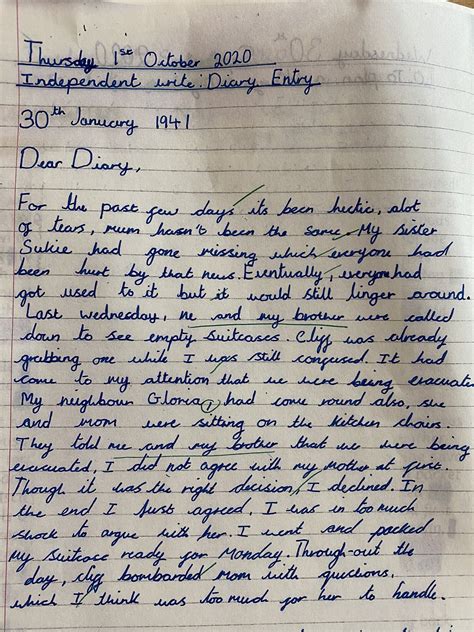 Thursday 1st October 2020
Independent write: Diary Entry
30th January 1941
Dear Diary,
For the past few days its been hectic, alot
of tears, mum hasn't been the same. My sister
Sukie had gone missing which everyone had
been hurt by that news. Eventually, everyone had
got used to it but it would still linger around.
Last Wednesday, me and my brother were called
down to see empty suitcases. Cliff was already
grabbing one while I was still confused. It had
come to my attention that we were being evacuate
My neighbour Gloria had come round also, she
and mom were sitting on the kitchen chairs.
They told me and my brother that we were being
evacuated, I did not agree with my mother at first.
Though it was the right decision, I declined. In
the end I just agreed, I was in too much
shock to argue with her. I went and packed
my suitcase ready for Monday. Through-out the
day, cliff bombarded mom with questions,
which I think was too much for her to handle.